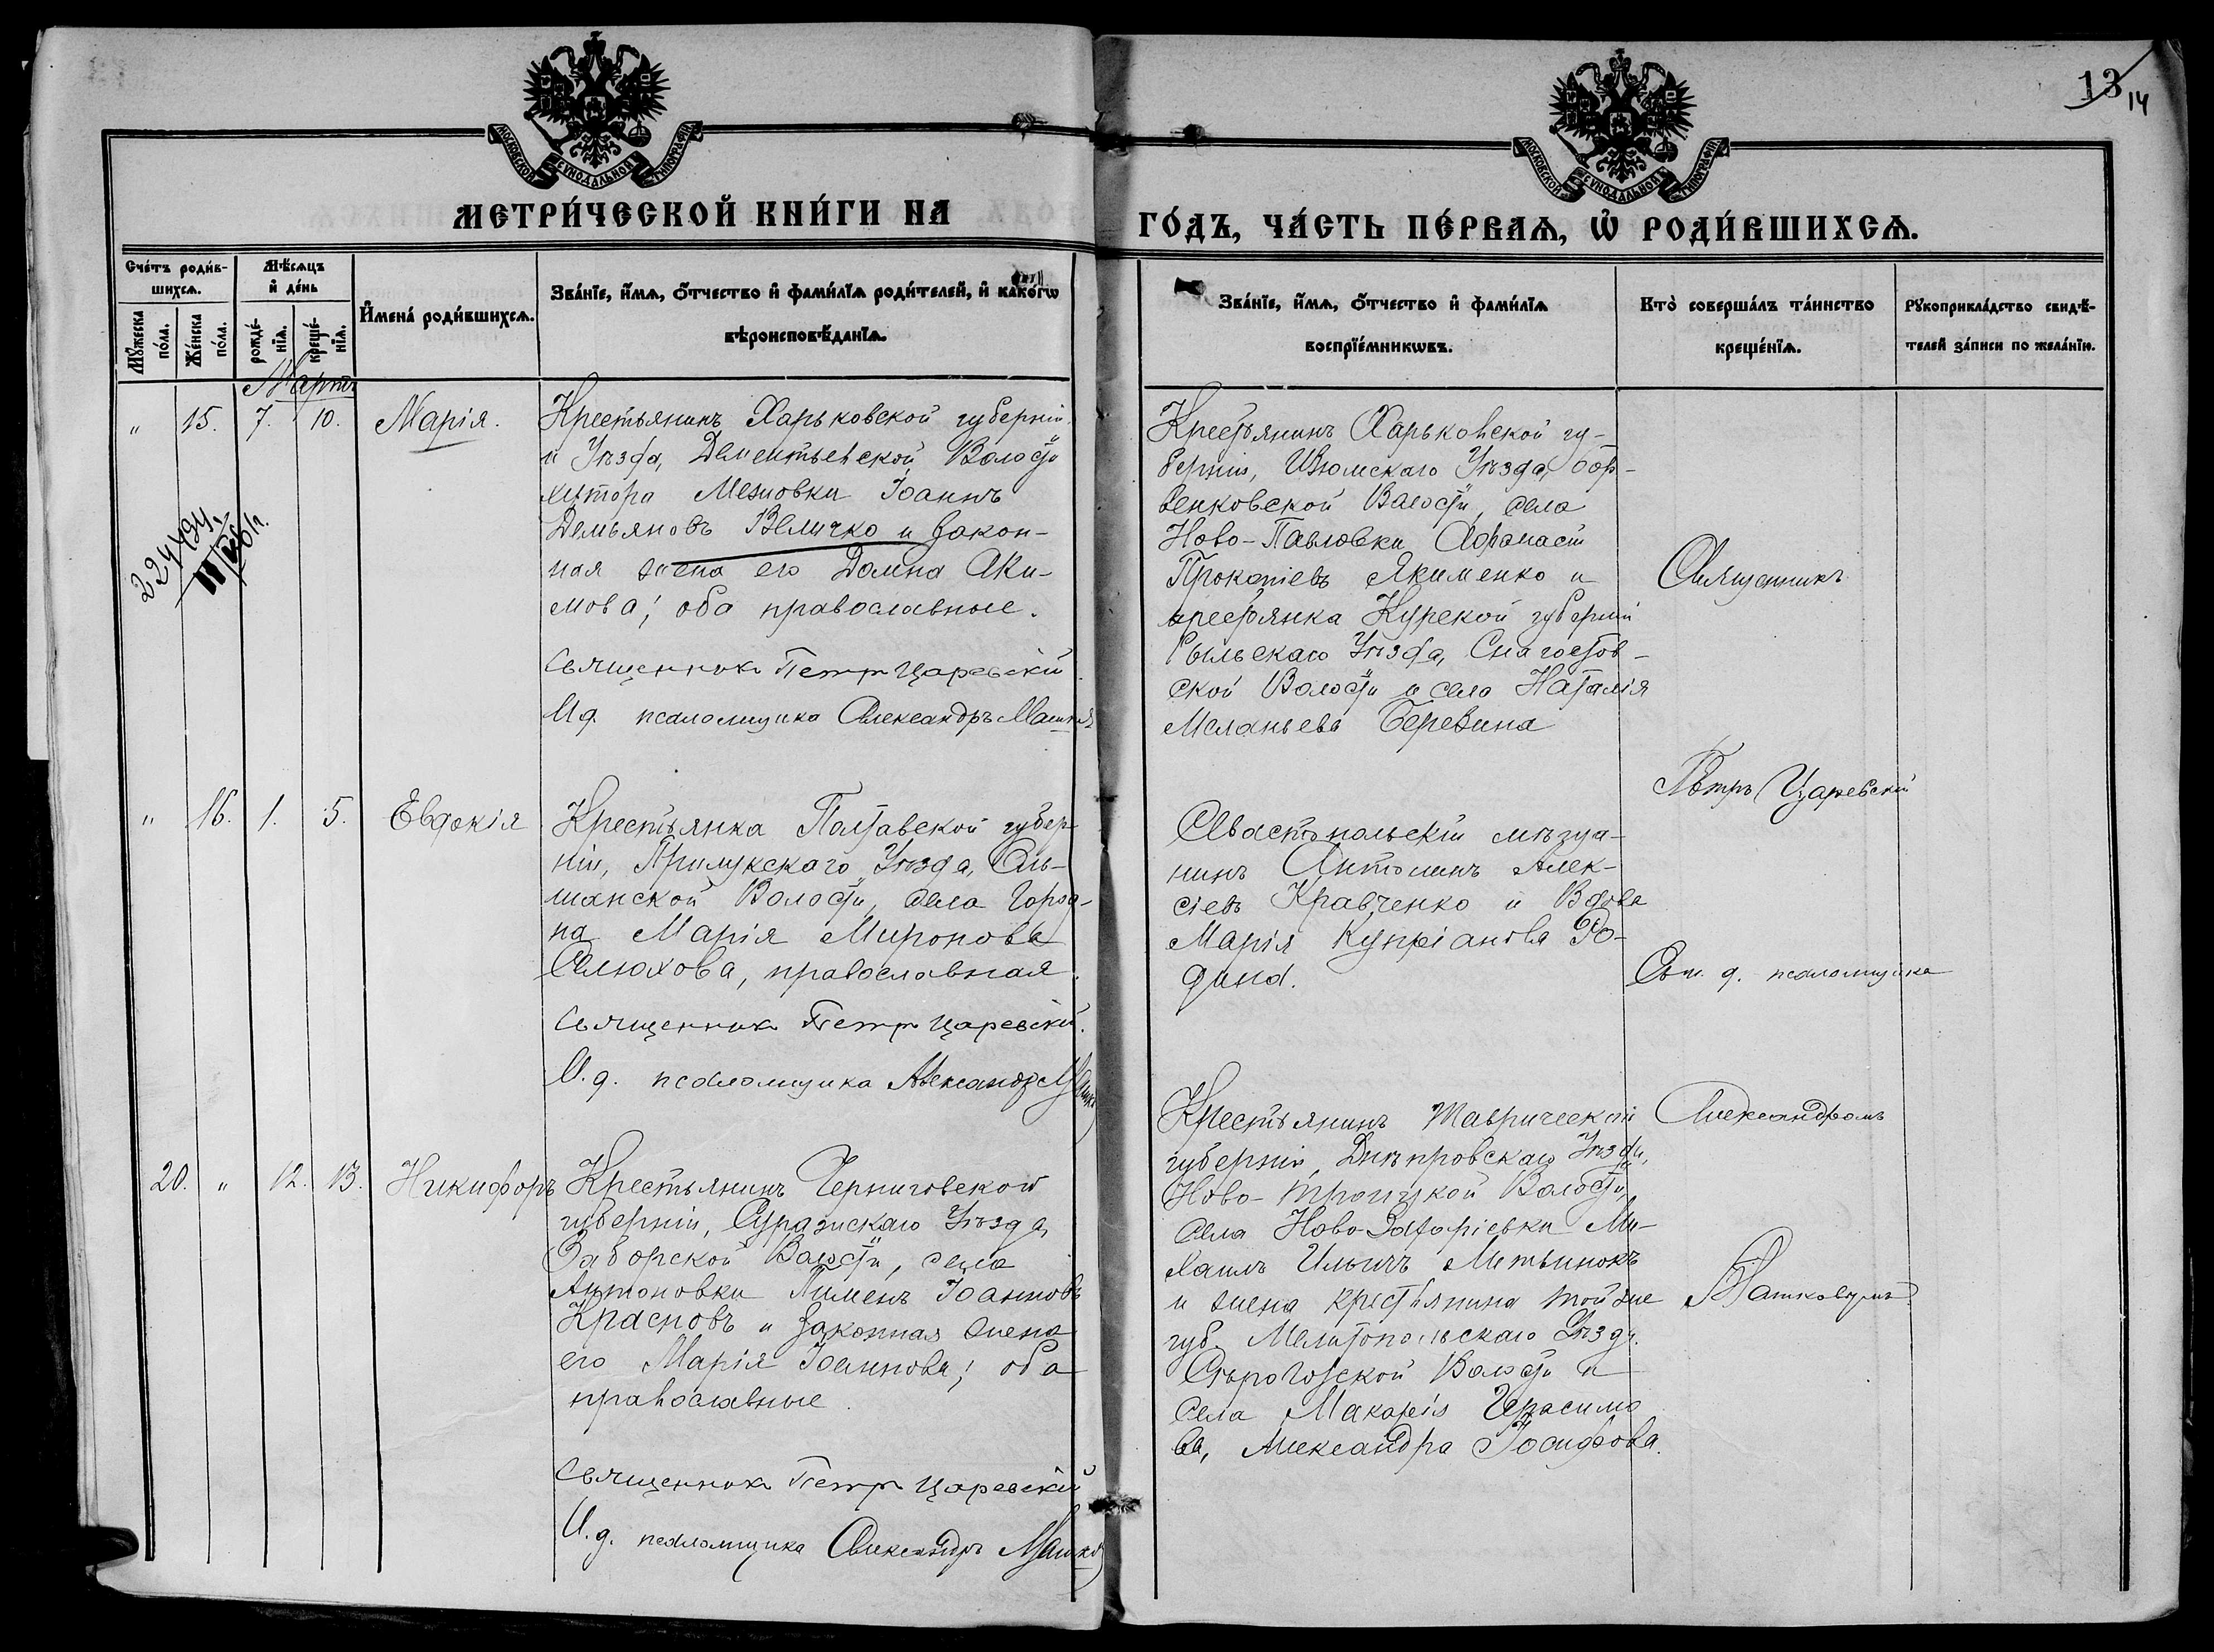 13 14
МОСКОВСКОЙ СѴНОДАЛЬНОЙ ТИПОГРАФІИ
МОСКОВСКОЙ СѴНОДАЛЬНОЙ ТИПОГРАФІИ
МЕТРИ́ЧЕСКОЙ КНИ́ГИ НА
ГО́ДЪ, ЧА́СТЬ ПЕ́РВАѦ, Ѡ҆ РОДИ́ВШИХСѦ.
Сче́тъ роди́в-
шихсѧ.
Мꙋ́жеска по́ла.
Же́нска по́ла.
Мѣ́сѧцъ
и҆ де́нь
рожде́-нїѧ.
креще́-нїѧ.
И҆мена̀ роди́вшихсѧ.
Зва́нїе, и҆́мѧ, ѻ҆́тчество и҆ фами́лїѧ роди́телей, и҆ како́гѡ
вѣроисповѣ́данїѧ.
Зва́нїе, и҆́мѧ, ѻ҆́тчество и҆ фами́лїѧ
воспрїе́мникѡвъ.
Кто̀ соверша́лъ та́инство
креще́нїѧ.
Рꙋкоприкла́дство свидѣ́-
телей за́писи по жела́нїю.
Мартъ
" 15. 7. 10. Марія.
Крестьянинъ Харьковской губерніи
и Уѣзда, Дементьевской Волости
хутора Мезиовки Іоаннъ
Демьяновъ Величко и закон-
ная жена его Домна Аки-
мова; оба православные.
Священник Петр Царевскій
И.д. псаломщика Александръ
Крестьянинъ Харьковской гу-
берніи, Изюмскаго Уѣзда, Бар-
венковской Волости, села
Ново-Павловки Афанасій
Прокопіевъ Якименко и
крестьянка Курской губерніи
Рыльскаго Уѣзда, Снагостов-
ской Волости и села Наталія
Меланьева Березина
Священникъ
Петръ Царевскій
" 16. 1. 5. Евдокія
Крестьянка Полтавской губер-
ніи, Прилукскаго Уѣзда, Оль-
шанской Волости, села Город-
на Марія Миронова
Селюхова, православная.
Священник Петр Царевскій.
И.д. псаломщика Александръ
Севастопольскій мѣща-
нинъ Антонинъ Алек-
сіевъ Кравченко и Вдова
Марія Купріанова Ро-
дина.
д. псаломщика
Александромъ
20. " 12. 13. Никифоръ
Крестьянинъ Черниговской
губерніи, Суражскаго Уѣзда,
Заборской Волости, села
Антоновки Пименъ Іоанновъ
Красновъ и законная жена
его Марія Іоаннова; оба
православные.
Священник Петр Царевскій
И.д. псаломщика Александръ
Крестьянинъ Таврической
губерніи, Днѣпровскаго Уѣзда,
Ново-Троицкой Волости,
села Ново-Захаріевки Ми-
хаилъ Ильичъ
и жена крестьянина той же
губ. Мелитопольскаго Уѣзда
Сѣрогозской Волости и
села Макарія Герасимо
ва, Александра Іосифова.